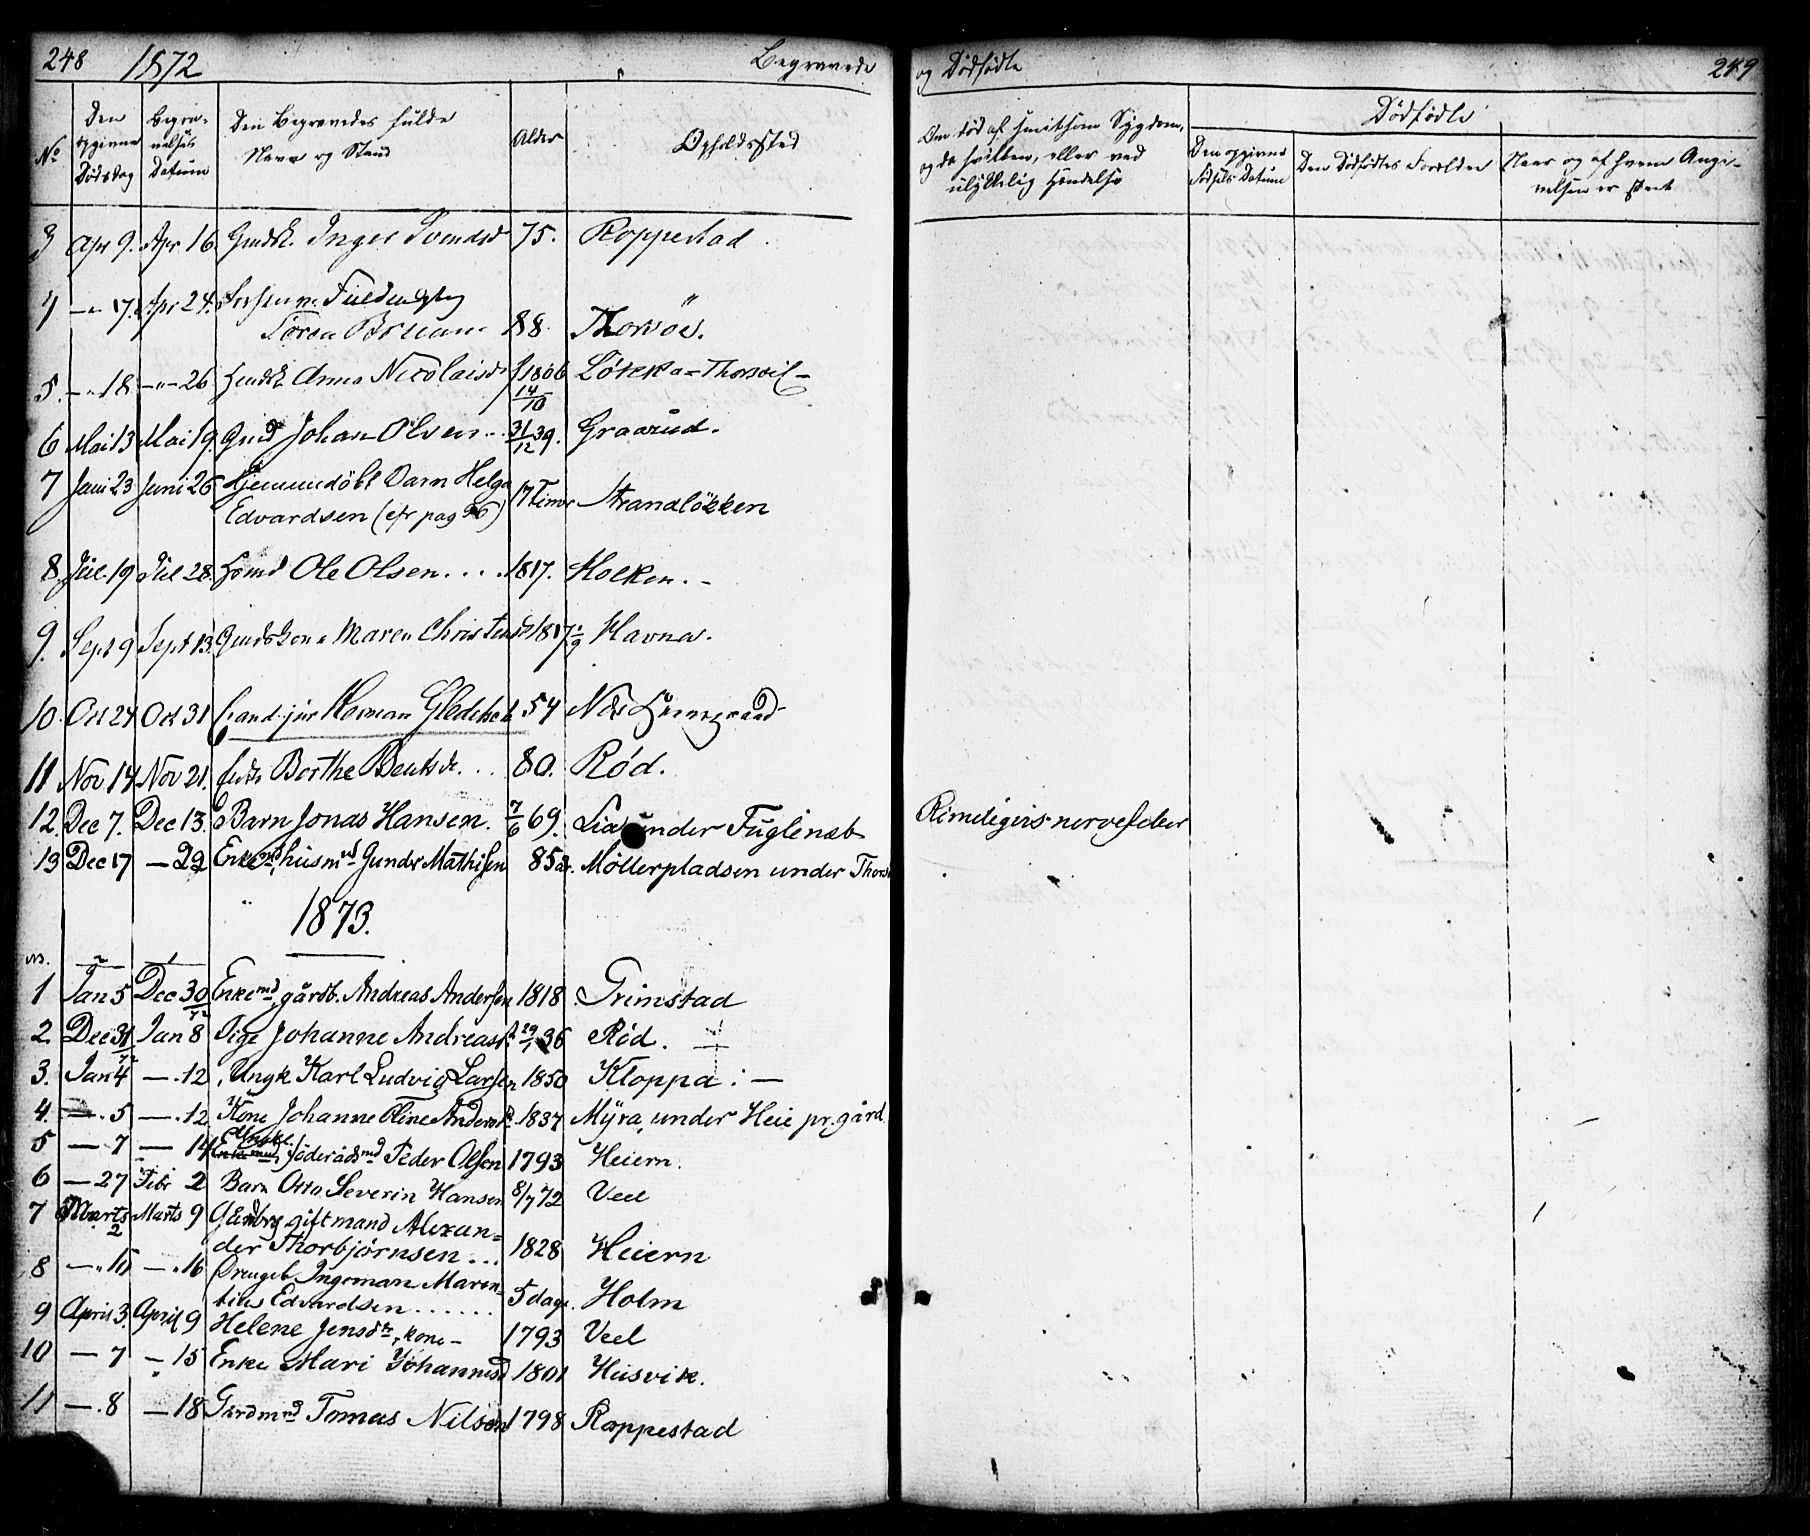 248 1872 Begravede
No Den opgivne Dødsdag Begravelses Datum Den Begravedes fulde Navn og Stand Alder Opholdssted
3 Apr 9. Apr 16 Gmdsk. Inger Svendsd 75. Roppestad
4 — 17. Apr 24.
Søren 88. Thorsøe.
5. — 18. — 26 Anna Nicolaisd f 1806 14/10 Løkka - Thorsvik
6 Mai 13 Mai 19. Gmd Johan Olsen .. 31/12 39. Graarud.
7 Juni 23 Juni 26 Hjemmedøbt Barn Helga
Edvardsen (cfr pag 26) 17 Timer Strandløkken
8. Jul. 19 Jul 28. Hsmd Ole Olsen . . . . 1817. Holken. -
9. Sept 9 Sept 13. Gmdskone Maren Christensd 1817 1/9 Havna.
10. Oct 24 Oct 31 Cand. jur Herman Gleditsch 54 Næs Herregaard
11 Nov 14 Nov 21. Berthe Bentsdr. . . . 80. Rød.
12. Dec 7. Dec 13. Barn Jonas Hansen. 7/6 69. Lia under Fuglenæb
13 Dec 17 — 22 Enkemd, husmd Gunder Mathisen 85 a. Møllerpladsen under Thors
1873.
No.
1 Jan 5 Dec 30/72 Enkemd, gårdb. Andreas Andersen 1818. Grimstad
2. Dec 31/72 Jan 8 Pige Johanne Andreasd. 29/1 36 Rød. —
3. Jan 4 — . 12 Ungk Karl Ludvig Larsen 1850 Kloppa : —
4. — . 5 — . 12 Kone Johanne Oline Andersd. 1837 Myra, under Heie pr. gård
5 — 7 — 14 Enkemand, föderådsmd Peder Olsen 1793 Heiern.
6 — 27 Febr 2 Barn Otto Severin Hansen 8/7 72 Veel
7 Marts 2 Marts 9 Gårdbrg gift mand Alexan=
der Thorbjørnsen ... 1828 Heiern
8 — " 10 — " 16 Drengeb Ingoman Maren-
tius Edvardsen . . . . . . 5 dage. Holm
9 April 3. April 9 Helene Jensdtr, kone - 1793 Veel
10 — 7 — 15 Enke Mari Johannesd 1801 Husvik.
11 — . 8 — 18 Gårdmnd Tomas Nilsen 1798 Roppestad
og Dødfødte 249
Om død af smitsom Sygdom, og da hvilken, eller ved ulykkelig Hændelse
Dødfødte
Den opgivne Fødsels Datum Den Dødfødtes Forældre Naar og af hvem Angivelsen er skeet
Rimeligvis nervefeber